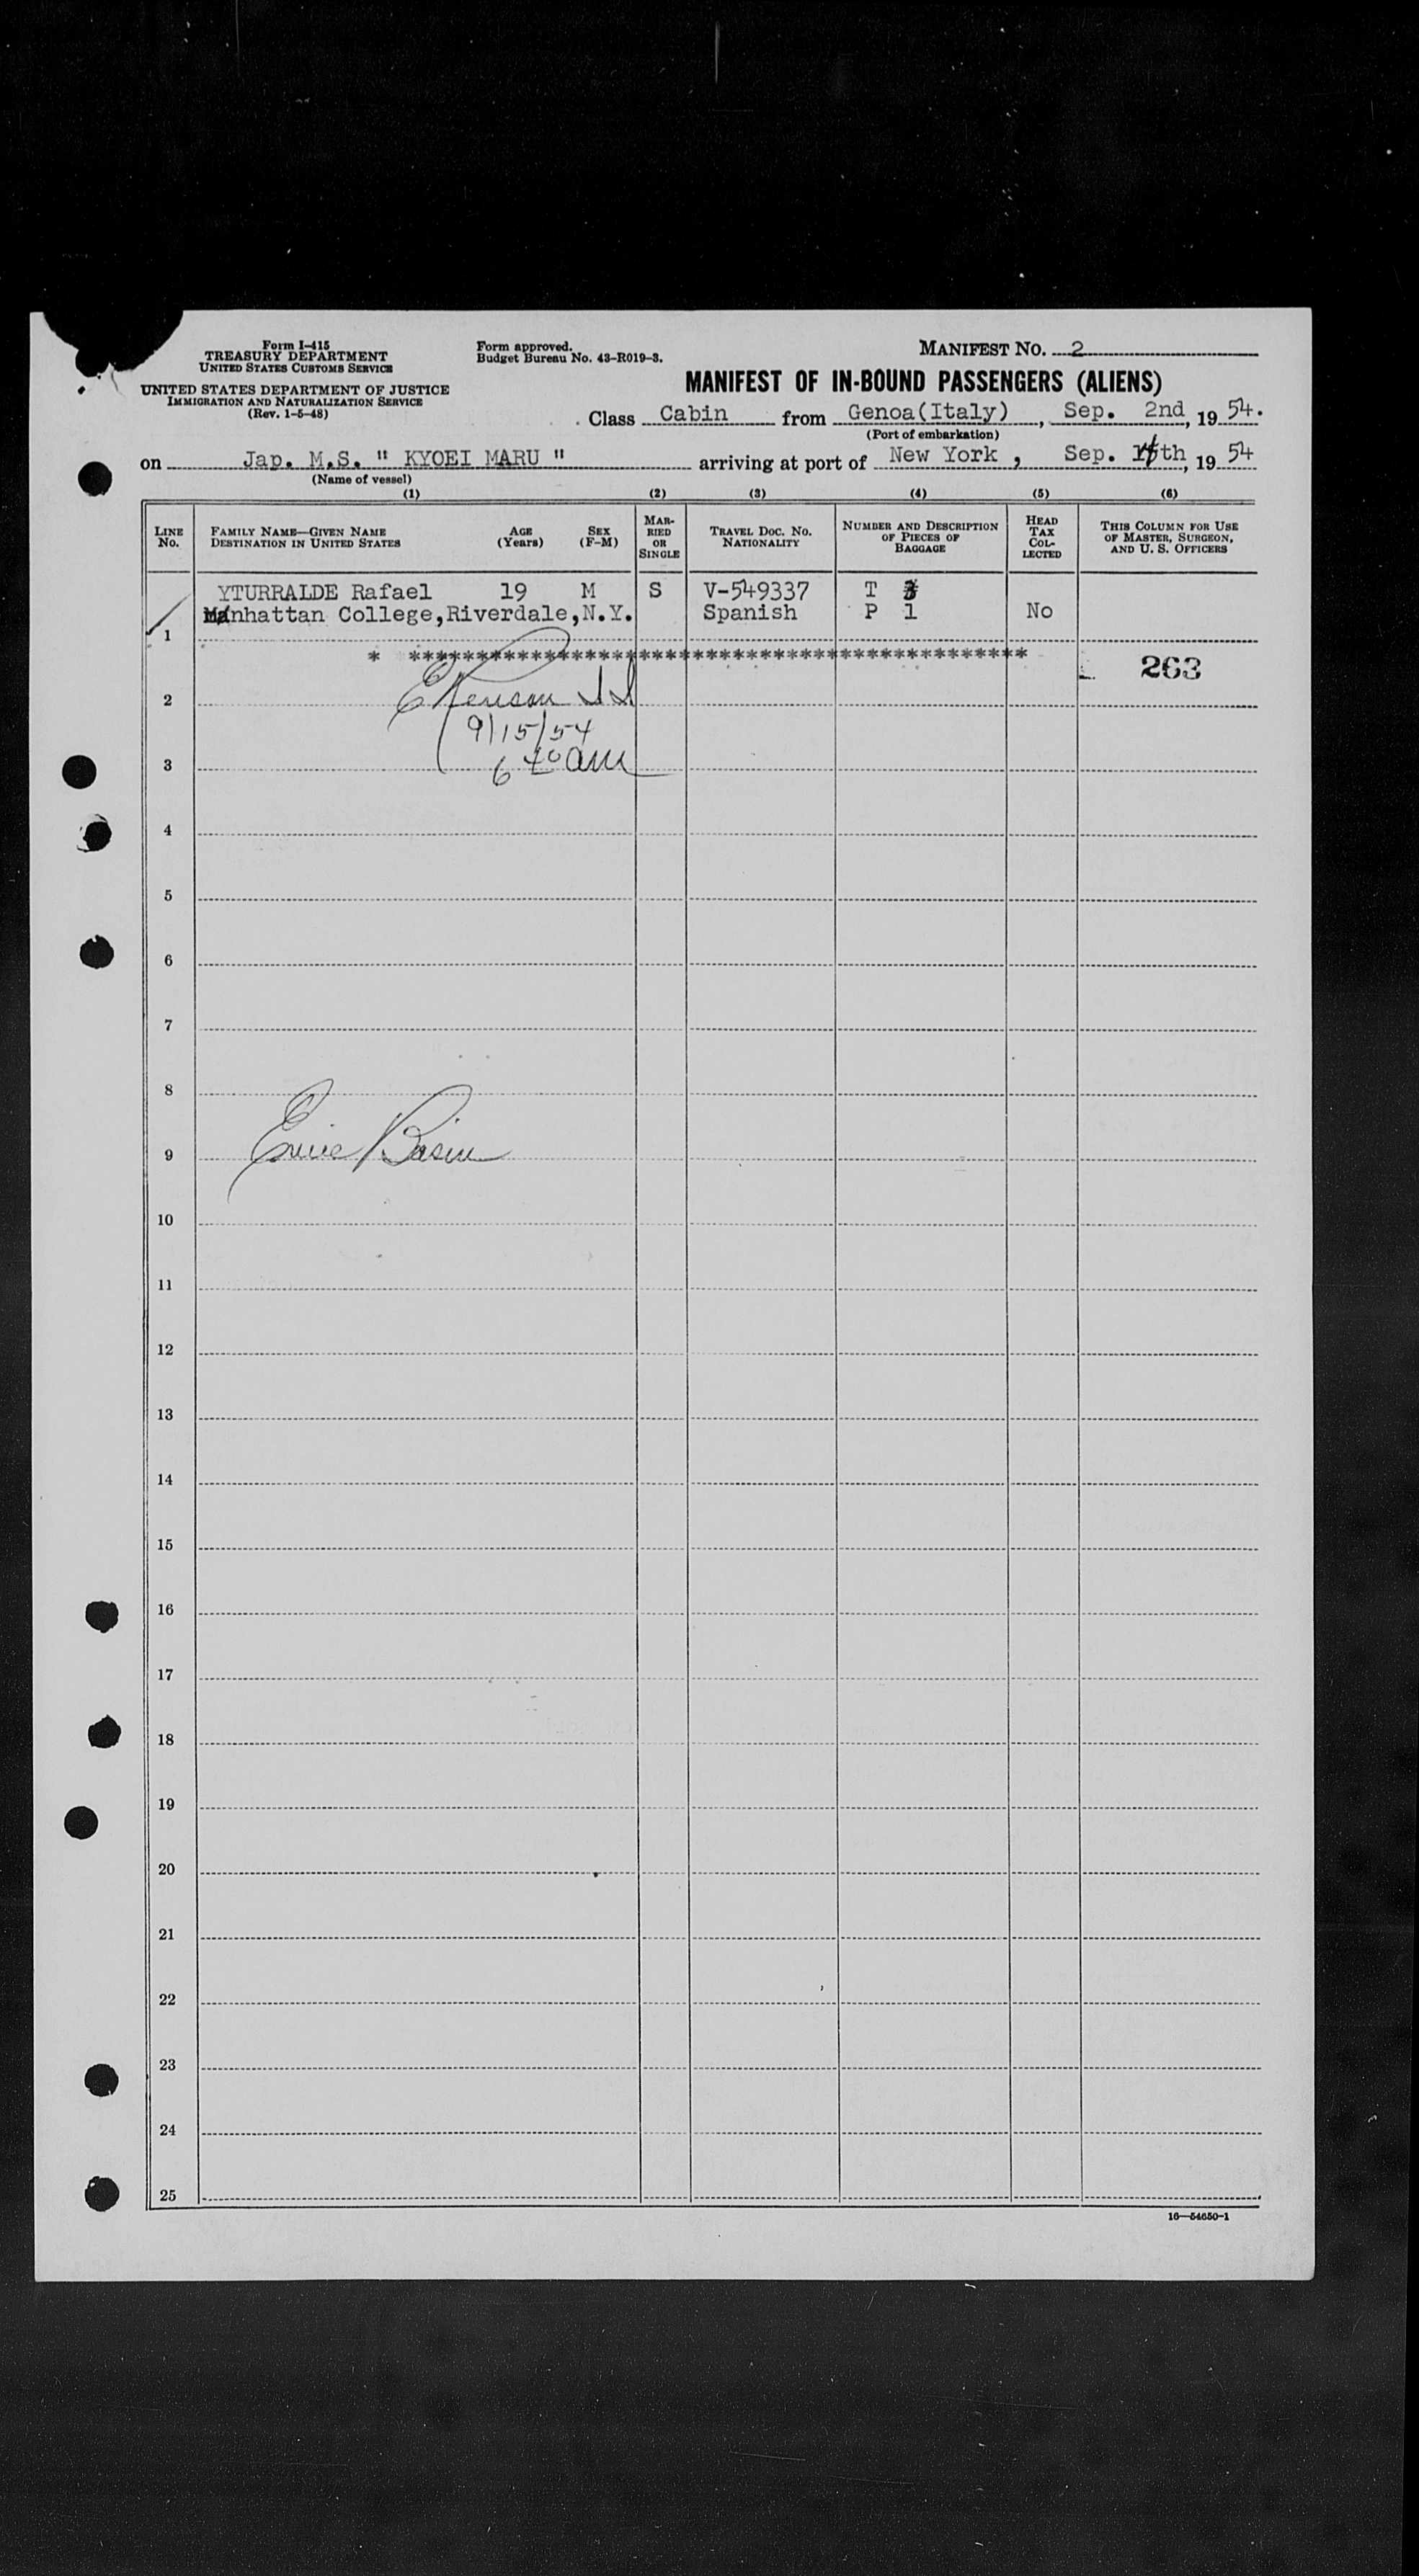 Form I-415
TREASURY DEPARTMENT
UNITED STATES CUSTOMS SERVICE
UNITED STATES DEPARTMENT OF JUSTICE
IMMIGRATION AND NATURALIZATION SERVICE
(Rev. 1-5-48)
Form approved.
Budget Bureau No. 43-R019-3.
MANIFEST NO. 2
MANIFEST OF IN-BOUND PASSENGERS (ALIENS)
Class Cabin from Genoa(Italy), Sep. 2nd, 19 54.
(Port of embarkation)
on Jap. M.S. " KYOEI MARU " arriving at port of New York , Sep. th, 19 54
(Name of vessel)
(1) (2) (3) (4) (5) (6)
LINE No. FAMILY NAME—GIVEN NAME DESTINATION IN UNITED STATES AGE (Years) SEX (F-M) MARRIED OR SINGLE TRAVEL DOC. NO. NATIONALITY NUMBER AND DESCRIPTION OF PIECES OF BAGGAGE HEAD TAX COLLECTED THIS COLUMN FOR USE OF MASTER, SURGEON, AND U. S. OFFICERS
YTURRALDE Rafael 19 M S V-549337 T
Manhattan College,Riverdale,N.Y. Spanish P 1 No
1
* **********************************************
263
2
9/15/54
3
6 40 am
4
5
6
7
8
9 Basin
10
11
12
13
14
15
16
17
18
19
20
21
22
23
24
25
16—54650-1